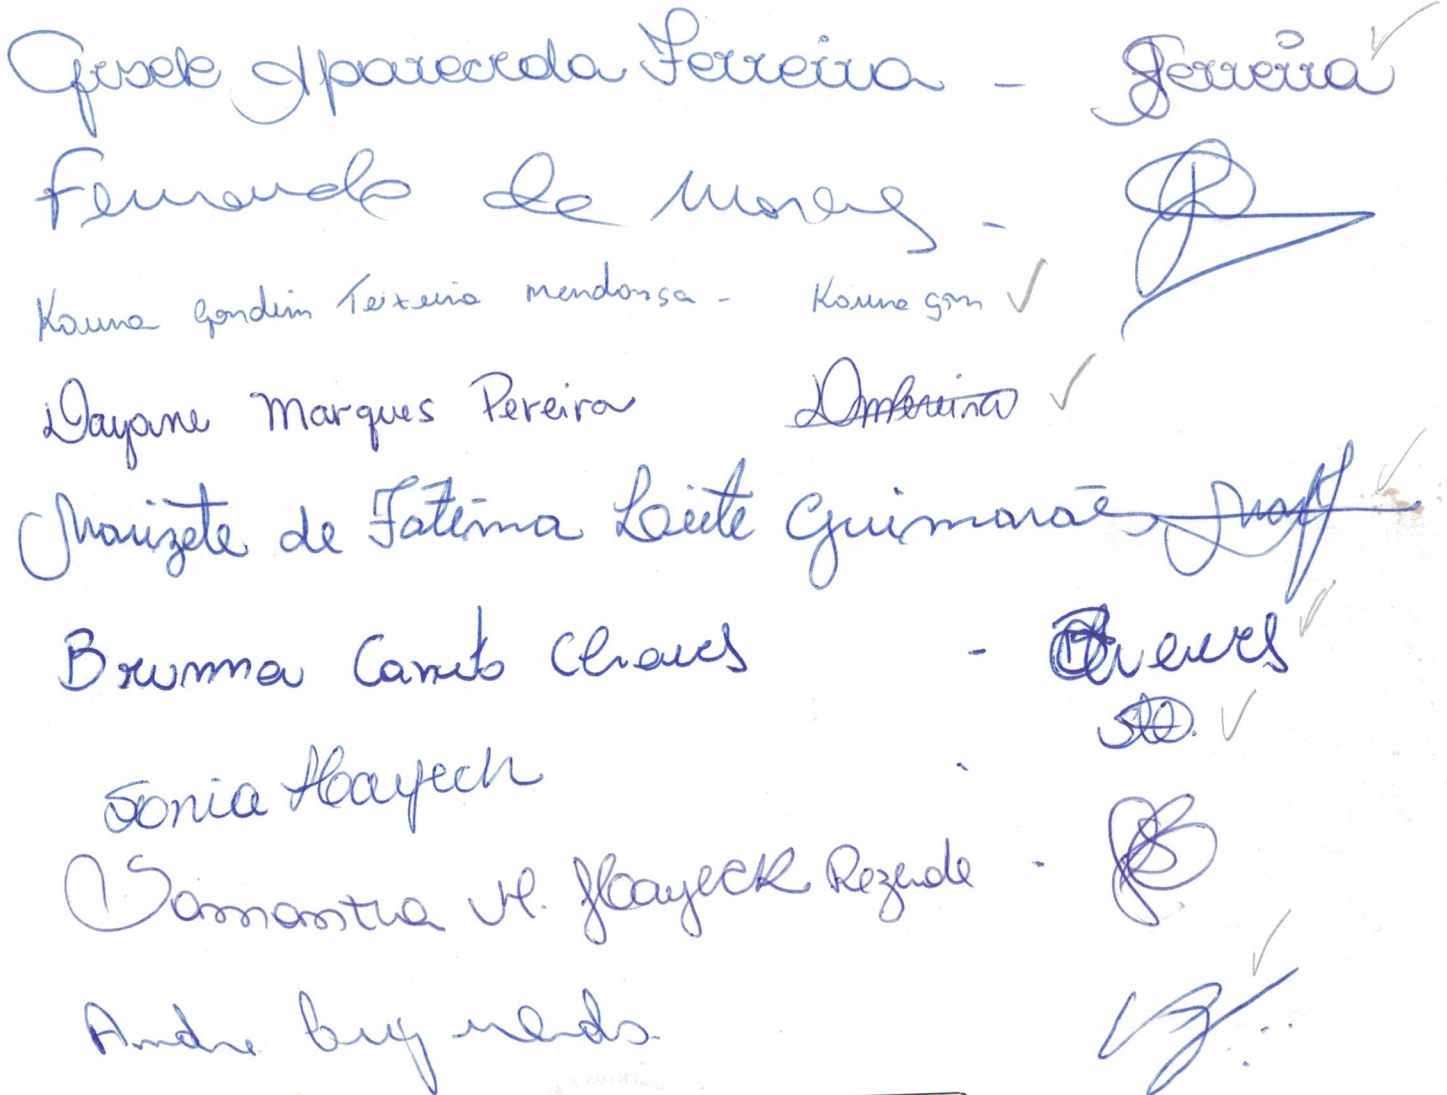 Gisele Aparecida Ferreira - Ferreira
Fernando de Moraes -
Karina Gondim Teixeira Mendonssa - Karina Gon
Dayane Marques Pereira DmPereira
Marizete de Fatima Leite Guimarães
Brunna Camilo Chaves -
Sonia Hayech
Samantha M. Hayeck Rezende -
Andre